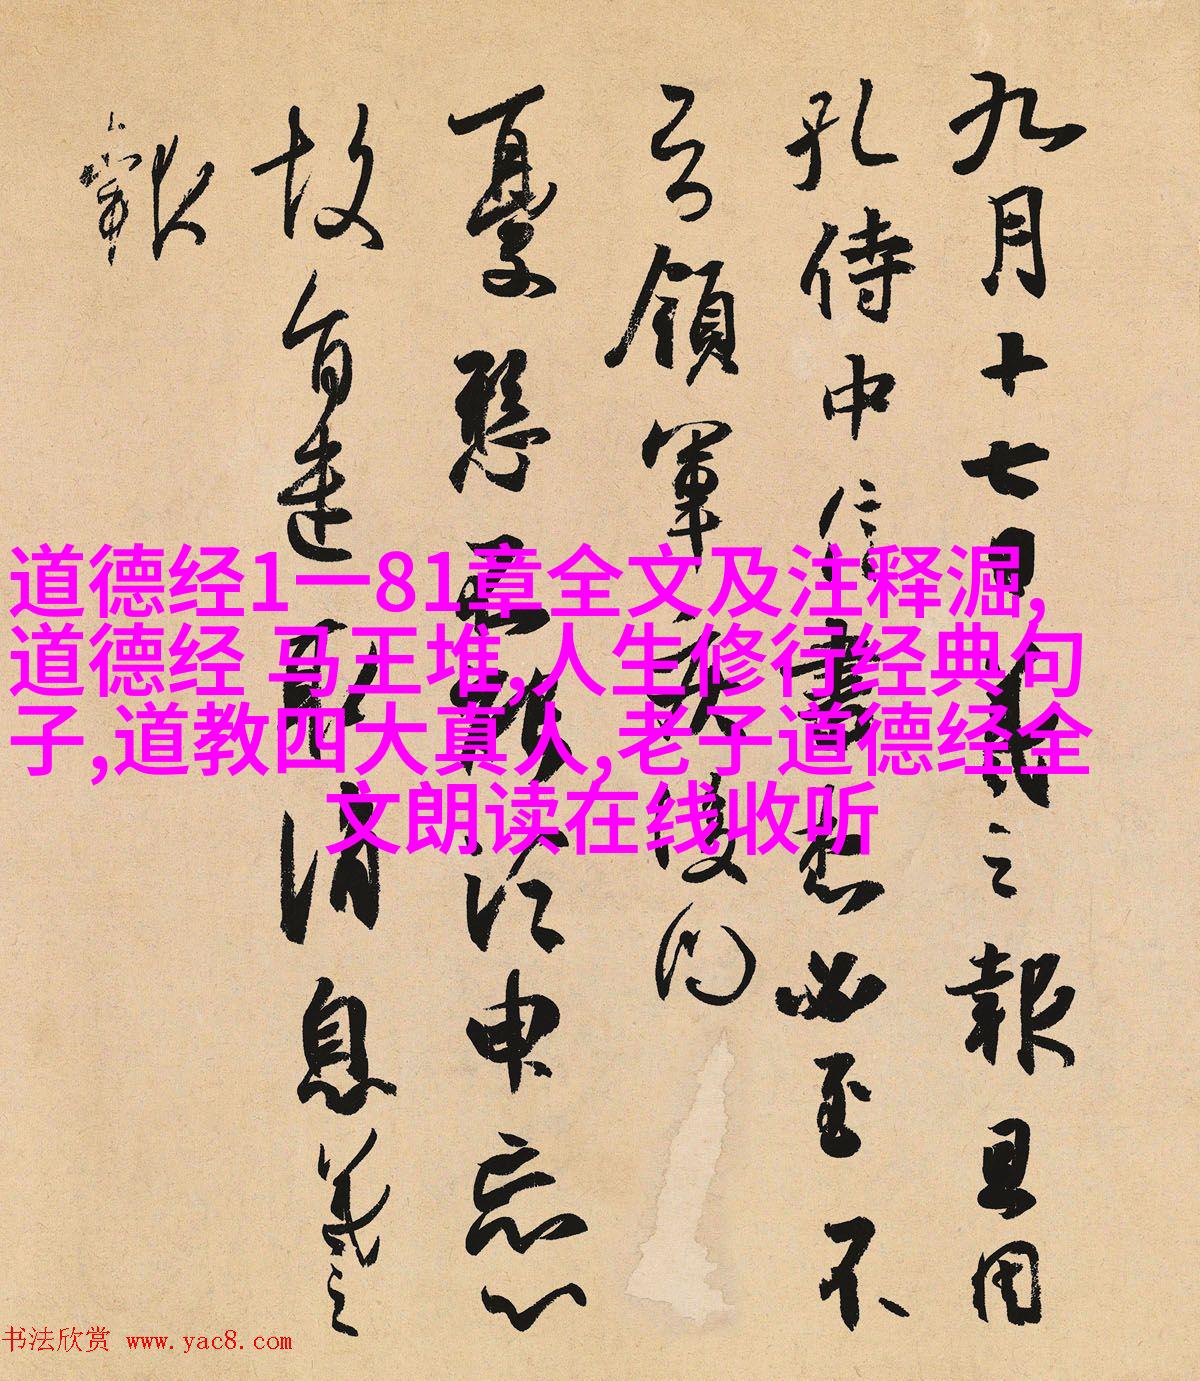 九月十七日羲之報且因
孔侍中信書想必至不
知領軍疾後問
憂懸不能須臾忘心
故旨遣取消息羲之
報
道德经1一81章全文及注释淈,
道德经 马王堆,人生修行经典句
子,道教四大真人,老子道德经全
文朗读在线收听
书法欣赏 www.yac8.com